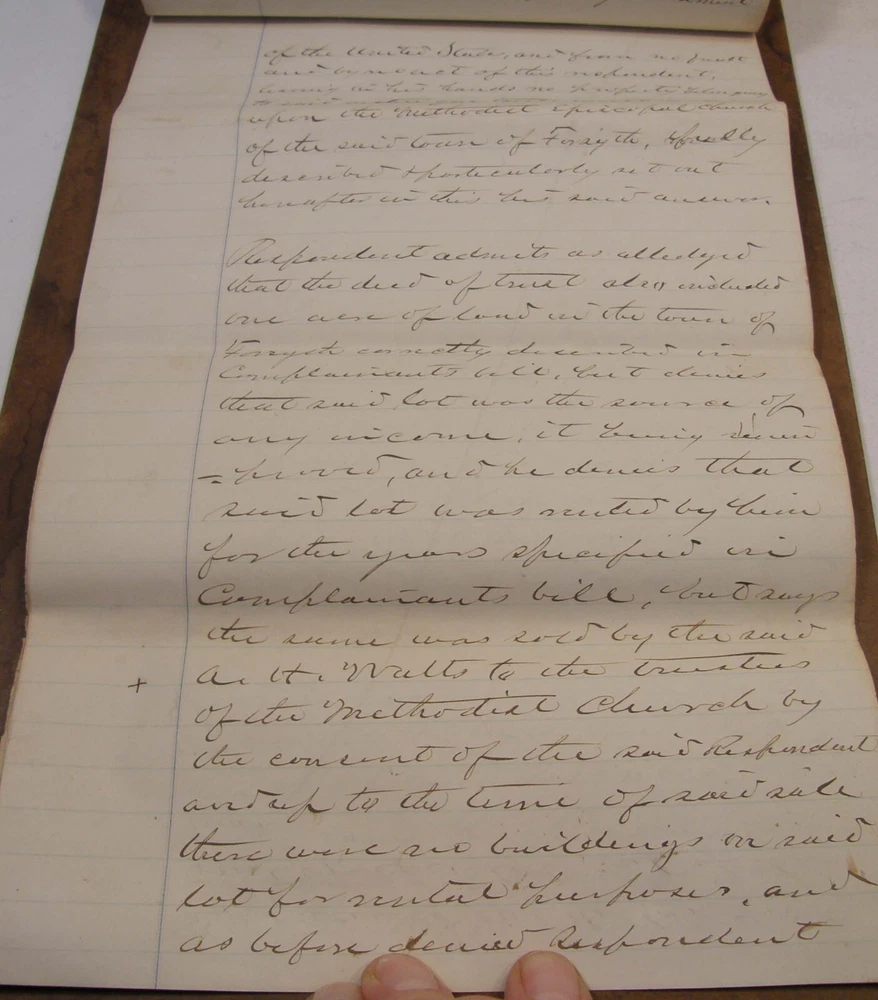 of the United States, and from no fault
and by no act of this respondent,
having in his hands no property
upon the Methodist Episcopal Church
of the said town of Forsyth, & fully
described & particularly set out
hereafter in this his said answer.
Respondent admits as alledged
that the deed of trust also included
one acre of land in the town of
Forsyth correctly described in
Complainants bill, but denies
that said lot was the source of
any income, it being
=proved, and he denies that
said lot was rented by him
for the years specified in
Complainants bill, but says
the same was sold by the said
+ A. H. Watts to the trustees
of the Methodist Church by
the consent of the said Respondent
and up to the time of said sale
there were no buildings on said
lot for rental purposes, and
as before denied Respondent